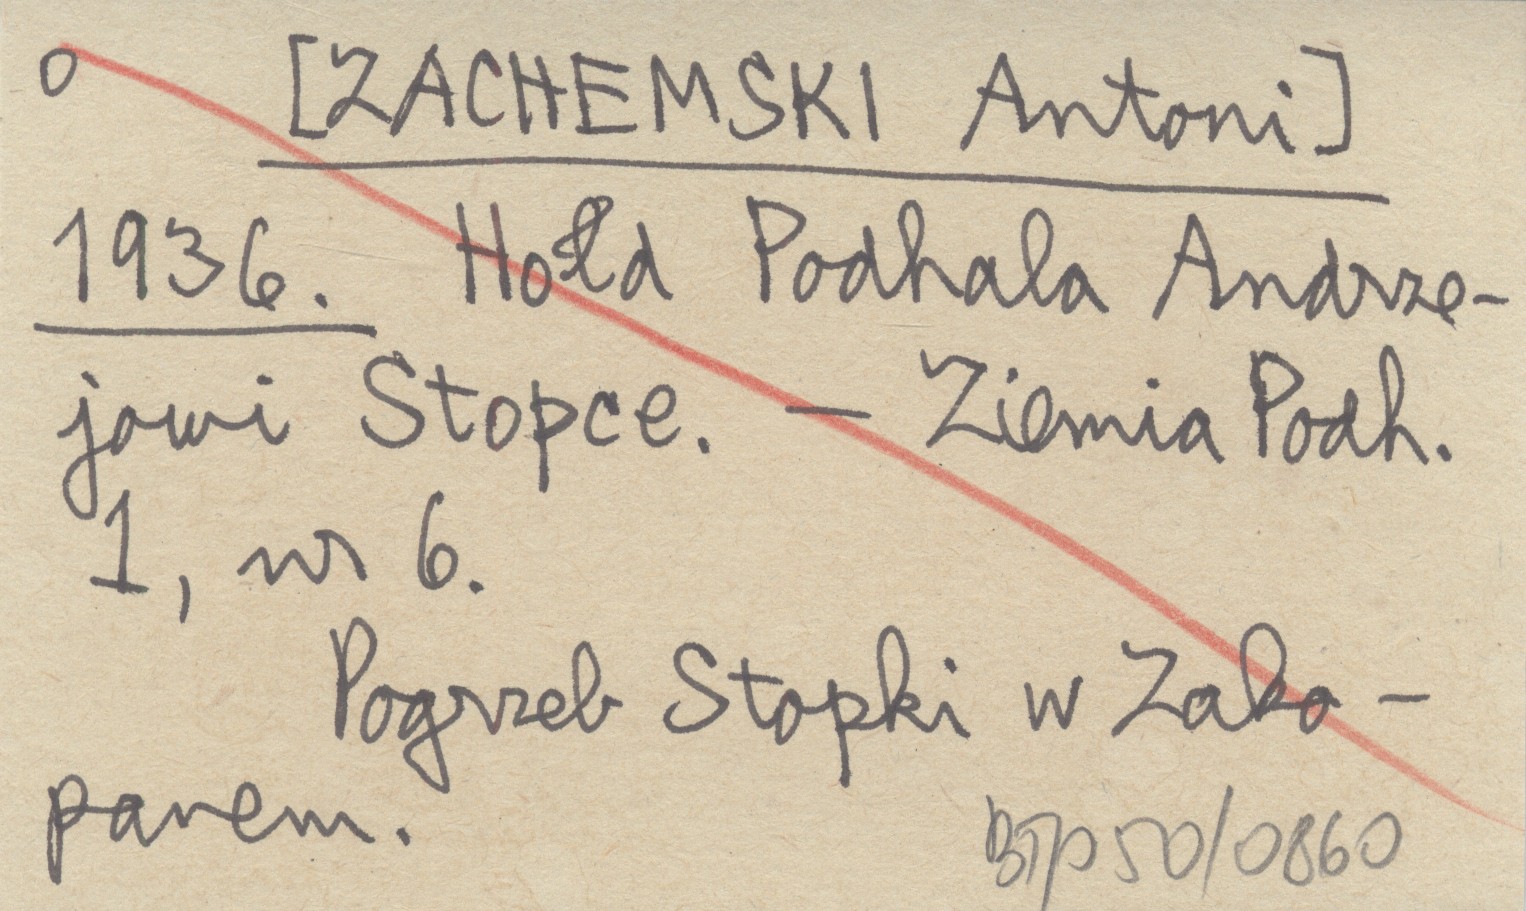 o [ZACHEMSKI Antoni]
1936. Hołd Podhala Andrze-
jowi Stopce. — Ziemia Podh.
1, nr 6.
Pogrzeb Stopki w Zako-
panem.
BTP 50/0860